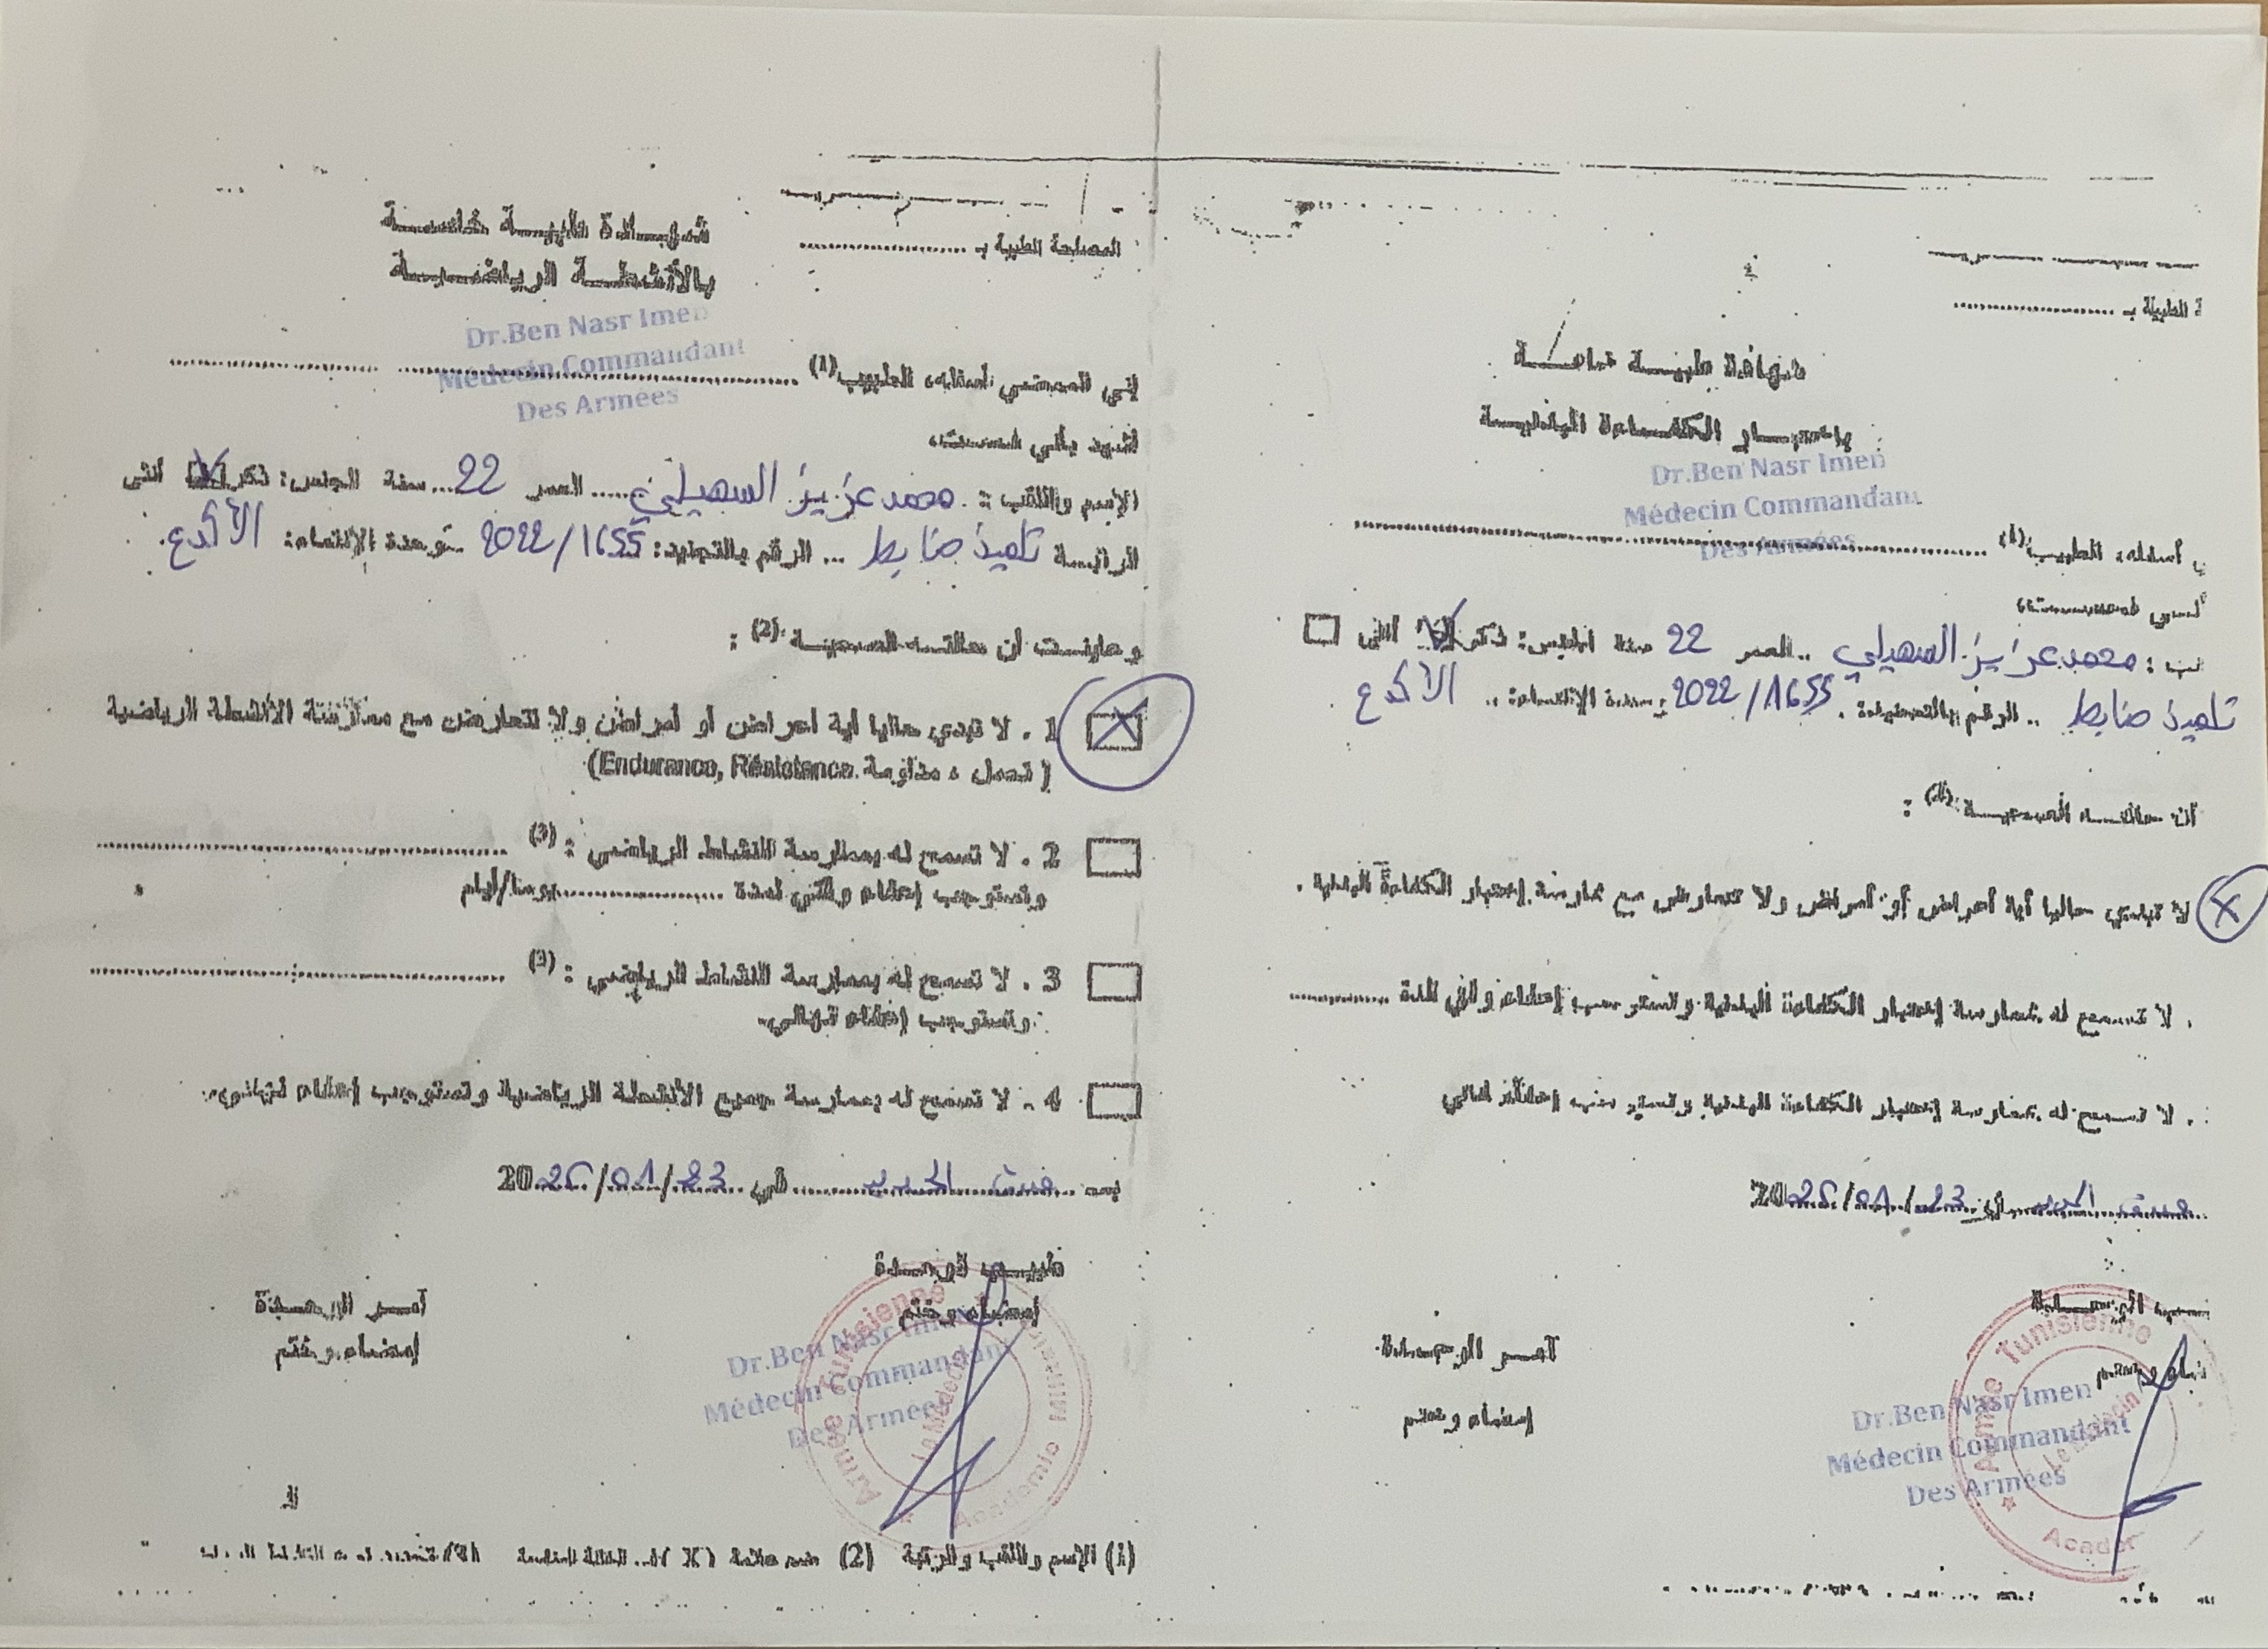 المصلحة الطبية بـ ....................
شهــادة طبيــة خاصــة
بالأنشطــة الرياضيــة
Dr.Ben Nasr Imen
Médecin Commandant
Des Armées
إني الممضي أسفله، الطبيب (1) ....................
أشهد بأني فحصت،
الإسم واللقب : محمد عزيز السهيلي ..... العمر 22 ... سنة الجنس: ذكر ☒ أنثى
الرتبــة تلميذ ضابط ... الرقم بالتجنيد: 2022/1655
وعاينــت أن حالتــه الصحيــة (2) :
☒ 1 . لا تبدي حاليا أية أعراض أو أمراض ولا تتعارض مع ممارسة الأنشطة الرياضية
( تحمل ، مقاومة Endurance, Résistance)
☐ 2 . لا تسمح له بممارسة النشاط الرياضي : (3) ....................
وتستوجب إعفاء وقتي لمدة .................... يوما/أيام
☐ 3 . لا تسمح له بممارسة النشاط الرياضي : (3) ....................
وتستوجب إعفاء نهائي.
☐ 4 . لا تسمح له بممارسة جميع الأنشطة الرياضية وتستوجب إعفاء نهائي.
في 23/01/2026
طبيــب الوحــدة
إمضاء وختم
آمــر الوحــدة
إمضاء وختم
Dr.Ben Nasr Imen
Médecin Commandant
Des Armées
Armée Tunisienne
Le Médecin
Academie Militaire
(1) الإسم واللقب والرتبة (2) ضع علامة (X) في الخانة المناسبة
ة الطبية بـ ....................
شهادة طبيــة خاصــة
باختبــار الكفــاءة البدنيــة
Dr.Ben Nasr Imen
Médecin Commandant
Des Armées
أسفله، الطبيب (1) ....................
محمد عزيز السهيلي .. العمر 22 سنة الجنس: ذكر ☒ أنثى ☐
تلميذ ضابط .. الرقم بالتجنيد: 2022/1655
أن حالتــه الصحيــة (2) :
☒ لا تبدي حاليا أية أعراض أو أمراض ولا تتعارض مع ممارسة إختبار الكفاءة البدنية .
. لا تسمح له بممارسة إختبار الكفاءة البدنية وتستوجب إعفاء وقتي لمدة ............
. لا تسمح له بممارسة إختبار الكفاءة البدنية وتستوجب إعفاء نهائي
في 23/01/2026
آمــر الوحــدة
إمضاء وختم
Dr.Ben Nasr Imen
Médecin Commandant
Des Armées
Armée Tunisienne
Le Médecin